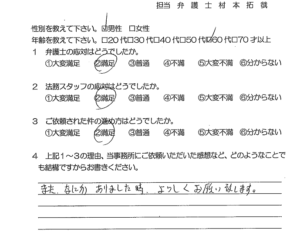 担当 弁護士 村本拓哉
性別を教えて下さい。☑男性 □女性
年齢を教えて下さい。□20代□30代□40代□50代☑60代□70才以上
1 弁護士の応対はどうでしたか。
①大変満足 ②満足 ③普通 ④不満 ⑤大変不満 ⑥分からない
2 法務スタッフの応対はどうでしたか。
①大変満足 ②満足 ③普通 ④不満 ⑤大変不満 ⑥分からない
3 ご依頼された件の進め方はどうでしたか。
①大変満足 ②満足 ③普通 ④不満 ⑤大変不満 ⑥分からない
4 上記1～3の理由、当事務所にご依頼いただいた感想など、どのようなことで
も結構ですからお書きください。
また、なにか ありました時、よろしくお願い致します。